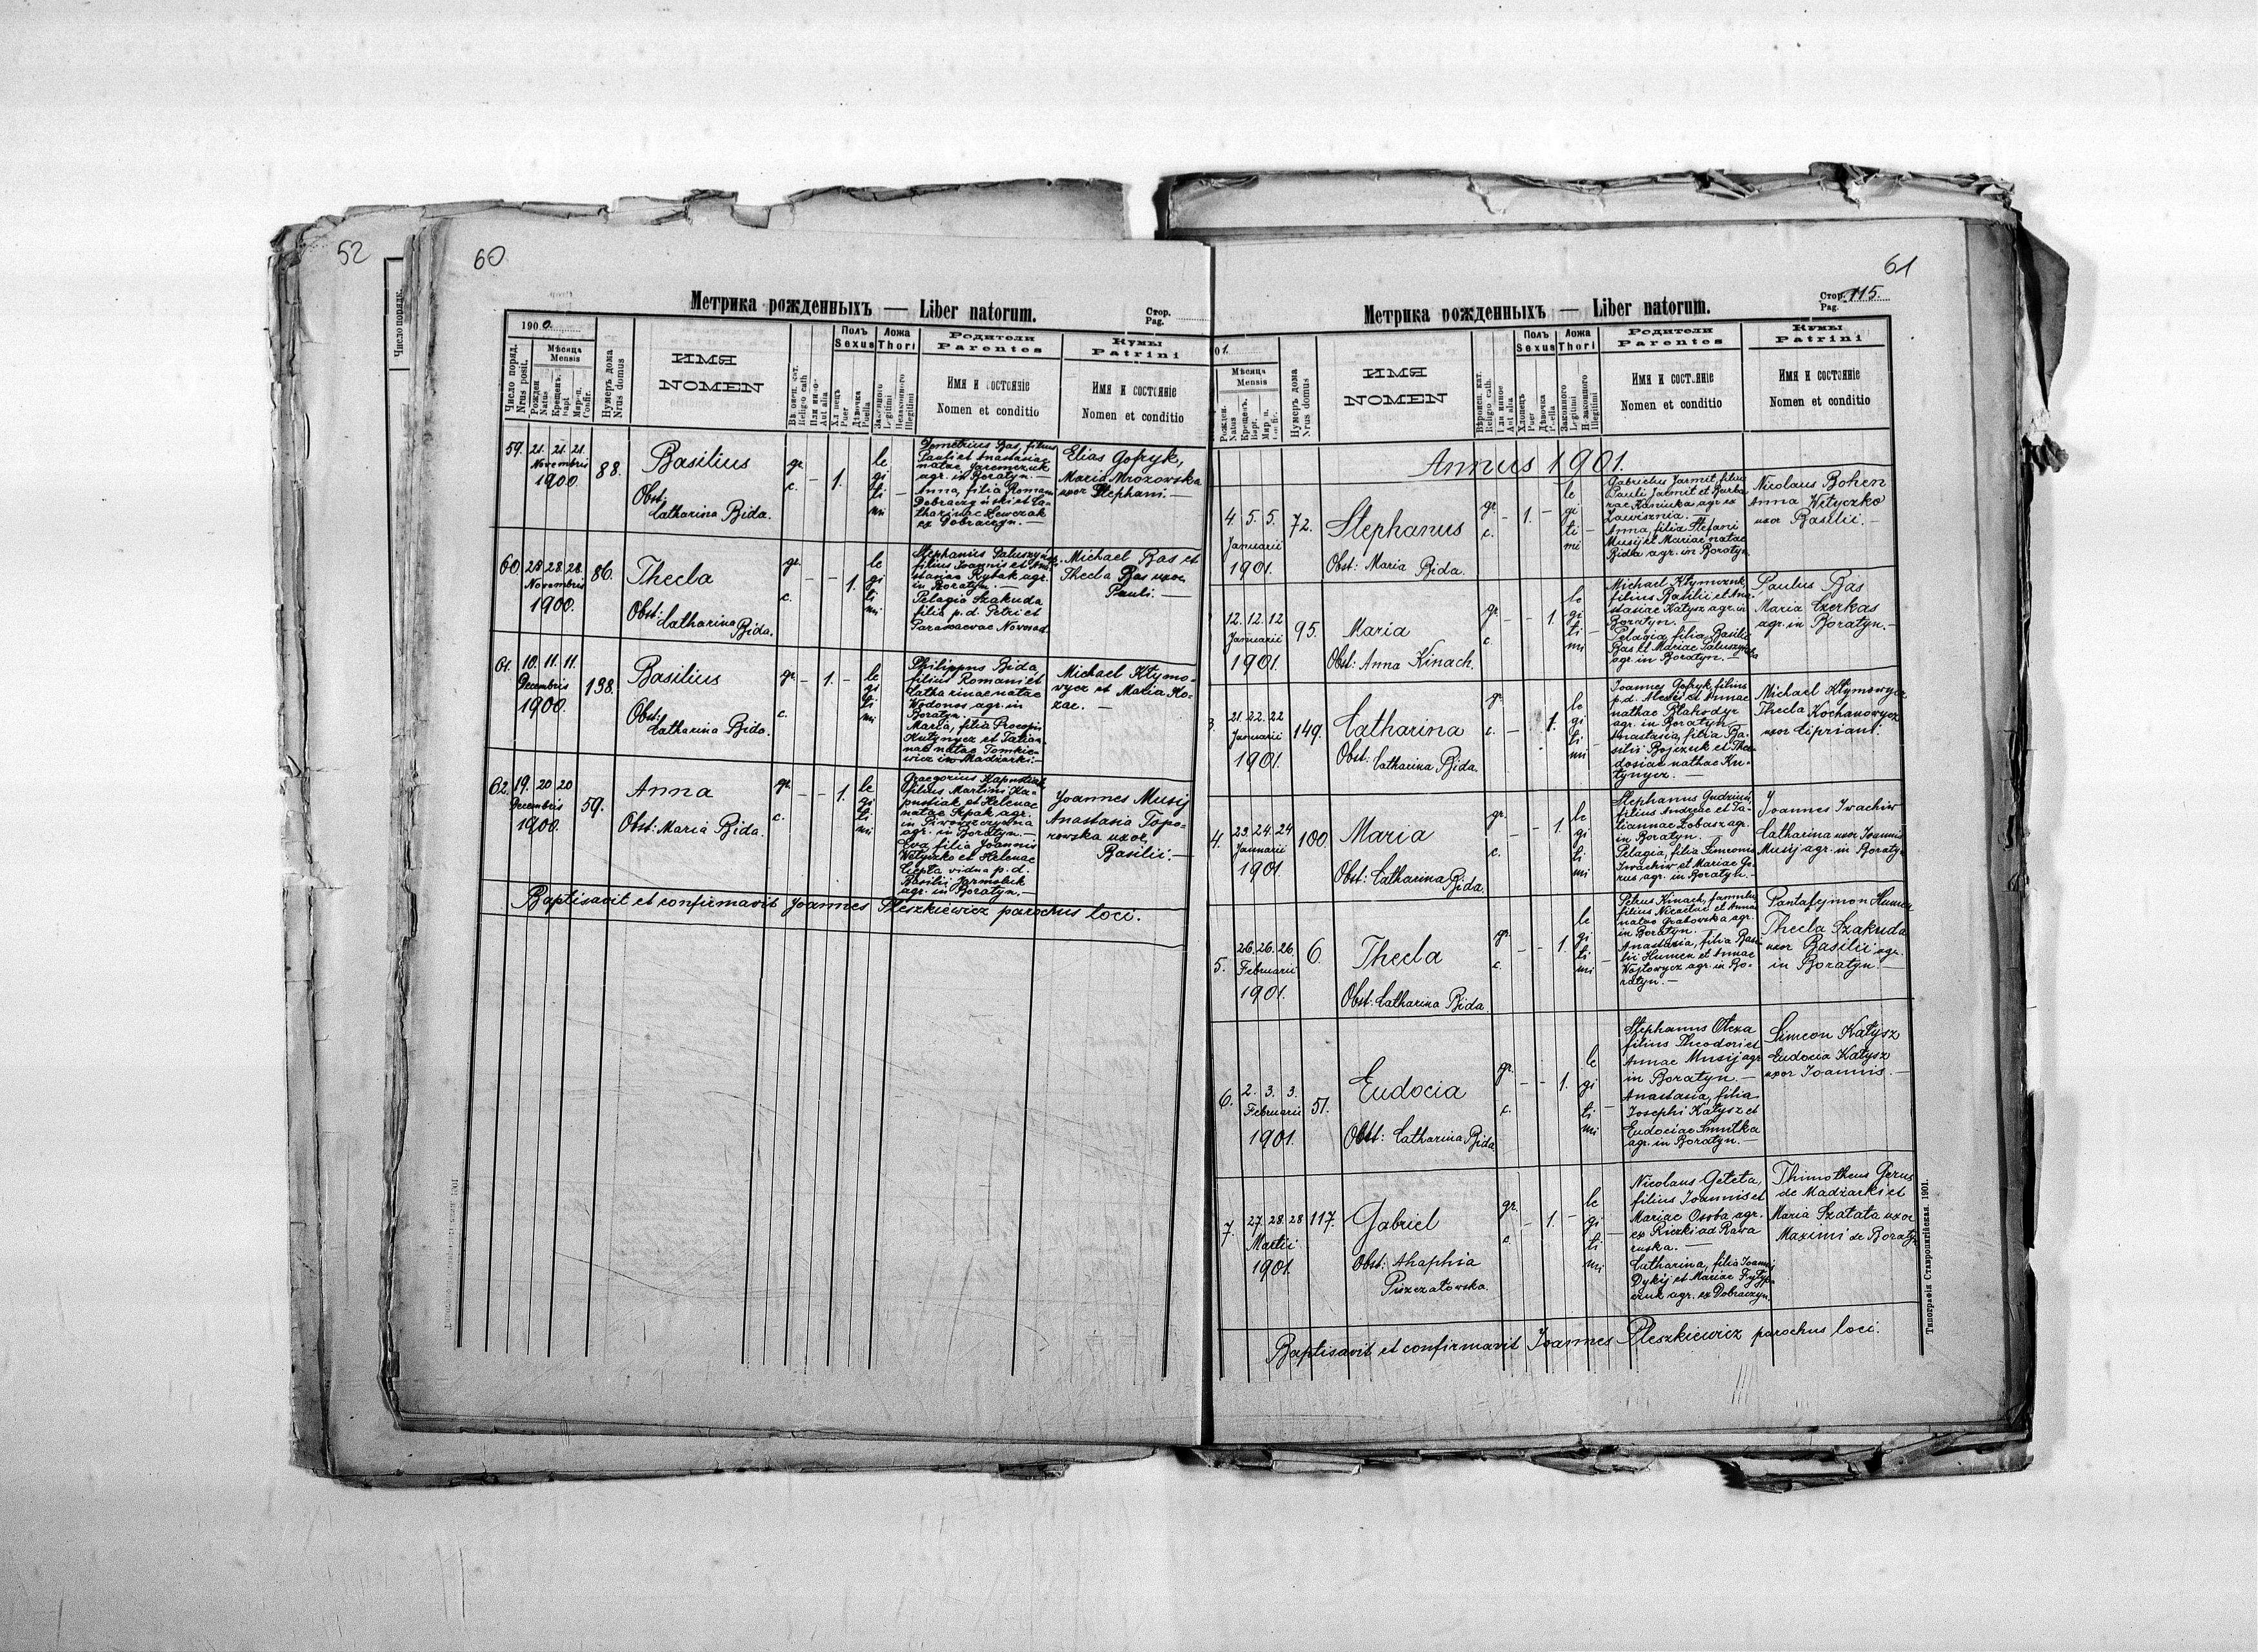 52
60
Метрика рожденныхъ — Liber natorum.
Стор.
Pag.
1900.
Число поряд.
Nrus posit.
Мѣсяца
Mensis
Рожден
Natus
Крещенъ.
Bapt
Мѵроп.
Confir.
Нумеръ дома
Nrus domus
ИМЯ
NOMEN
Полъ
Sexus
Хлопецъ
Puer
Дѣвочка
Puella
Ложа
Thori
Законного
Legitimi
Незаконного
Illegitimi
Родители
Parentes
Имя и состояніе
Nomen et conditio
Кумы
Patrini
Имя и состояніе
Nomen et conditio
59. 21. 21. 21.
Novembris
1900.
88.
Basilius
Obst:
Catharina Bida.
gr.
c.
– 1. –
le
gi
ti
mi
Demetrius Bas, filius
Pauli et Anastasiae
natae Jaremczuk
agr. in Boratyn. —
Anna, filia Romani
Dobraczyński et Ca-
tharinae Lewczak
ex Dobraczyn. —
Elias Gofryk,
Maria Mrozowska
uxor Stephani. —
60. 28. 28. 28.
Novembris
1900.
86.
Thecla
Obst:
Catharina Bida.
gr.
c.
– – 1.
le
gi
ti
mi
filius Joannis et Ana-
stasiae Rybak agr.
in Boratyn. —
Pelagia Szakuda
filia p. d. Petri et
Parascevae Novosad.
Michael Bas et
Thecla Bas uxor
Pauli. —
61. 10. 11. 11.
Decembris
1900.
138.
Basilius
Obst:
Catharina Bida.
gr.
c.
– 1. –
le
gi
ti
mi
Philippus Bida,
filius Romani et
Catharinae natae
Wodonos, agr. in
Boratyn. —
Maria, filia Procopii
Kutynycz et Tatian-
nae natae Tomkie-
wicz ex Madżarki. —
Michael Kłymo-
wycz et Maria Ko-
zac. —
62. 19. 20 20
Decembris
1900.
59.
Anna
Obst: Maria Bida.
gr.
c.
– – 1.
le
gi
ti
mi
filius Martini Ka-
pustiak et Helenae
natae Szpak, agr.
agr. in Boratyn. —
Eva, filia Joannis
Wityczko et Helenae
Basilii Jarmoluk
agr. in Boratyn. —
Joannes Musij
Anastasia Topo-
rowska uxor
Basilii. —
Baptisavit et confirmavit Joannes Pleszkiewicz parochus loci.
61
Метрика рожденныхъ — Liber natorum.
Стор.
Pag. 115.
01.
Мѣсяца
Mensis
Рожден.
Natus
Крещенъ.
Bapt.
Нумеръ дома
Nrus domus
ИМЯ
NOMEN
Religio cath.
Или иное
Aut alia
Полъ
Sexus
Хлопецъ
Puer
Дѣвочка
Ложа
Thori
Законного
Legitimi
Незаконного
Illegitimi
Родители
Parentes
Имя и состояніе
Nomen et conditio
Кумы
Patrini
Имя и состояніе
Nomen et conditio
Annus 1901.
4. 5. 5.
Januarii
1901.
72.
Stephanus
Obst: Maria Bida.
gr.
c.
– 1. –
le
gi
ti
mi
Gabrielus Jarmił, filius
Pauli Jarmił et Barba-
rae Kaniuka, agr. ex
Zawisznia. —
Anna, filia Stefani
Musij et Mariae natae
Bida agr. in Boratyn
Nicolaus Bohen
Anna Wityczko
uxor Basilii. —
12. 12. 12
Januarii
1901.
95.
Maria
Obst: Anna Kinach.
gr.
c.
– – 1.
le
gi
ti
mi
Michael Kłymczuk
filius Basilii et Ana-
stasiae Katysz agr. in
Boratyn. —
Pelagia, filia Basilii
agr. in Boratyn. —
Paulus Bas
Maria Czerkas
agr. in Boratyn. —
3. 21. 22. 22
Januarii
1901.
149.
Catharina
Obst: Catharina Bida.
gr.
c.
– 1.
le
gi
ti
mi
Joannes Gofryk, filius
p. d. Alexii et Annae
nathae Błahodyr
agr. in Boratyn. —
Anastasia, filia Ba-
silii Bojczuk et Theo-
dosiae nathae Ku-
tynycz. —
Michael Kłymowycz
Thecla Kochanowycz
uxor Cipriani.
4. 23. 24. 24
Januarii
1901
100.
Maria
Obst: Catharina Bida.
gr.
c.
– – 1.
le
gi
ti
mi
filius Andreae et Ta-
tiannae Łobasz agr.
in Boratyn. —
Pelagia, filia Simeonis
Iwachiw et Mariae Ge-
rus, agr. in Boratyn. —
Joannes Iwachiw
Catharina uxor Joannis
Musij agr. in Boratyn
5. 26. 26. 26.
Februarii
1901.
6.
Thecla
Obst: Catharina Bida.
gr.
c.
– – 1.
le
gi
ti
mi
Petrus Kinach, famulus
filius Nicetae et Annae
natae Grabovska, agr.
in Boratyn. —
Anastasia, filia Basi-
lii Humen et Annae
Wojtowycz agr. in Bo-
ratyn. —
Pantalejmon Humen
Thecla Szakuda
uxor Basilii agr.
in Boratyn. —
6. 2. 3. 3.
Februarii
1901.
51.
Eudocia
Obst: Catharina Bida
gr.
c.
– – 1.
le
gi
ti
mi
Stephanus Olexa
filius Theodori et
Annae Musij agr.
in Boratyn. —
Anastasia, filia
Josephi Katysz et
Eudociae Smutka
agr. in Boratyn. —
Simeon Katysz
Eudocia Katysz
uxor Joannis. —
7. 27. 28. 28
Martii
1901.
117.
Gabriel
Obst: Ahaphia
Piszczatowska.
gr.
c.
– 1. –
le
gi
ti
mi
Nicolaus Geteta,
filius Joannis et
Mariae Osoba, agr.
ex Riczki ad Rawa
ruska. —
Catharina, filia Joannis
Dykij et Mariae Fryty-
czuk agr. ex Dobraczyn.
Thimotheus Gerus
de Madżarki et
Maria Szatata uxor
Maximi de Boratyn
Baptisavit et confirmavit Joannes Pleszkiewicz parochus loci.
Типографія Ставропигійская. 1901.